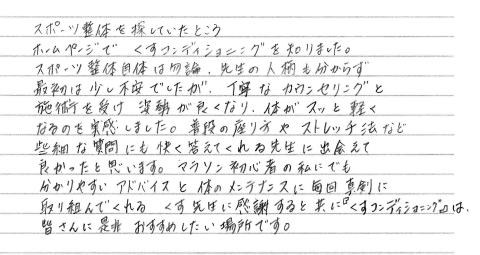 スポーツ整体を探していたところ
ホームページで くすコンディショニングを知りました。
スポーツ整体自体は勿論、先生の人柄も分からず
最初は少し不安でしたが、丁寧なカウンセリングと
施術を受け 姿勢が良くなり、体がスッと軽く
なるのを実感しました。普段の座り方や ストレッチ法など
些細な質問にも快く答えてくれる先生に出会えて
良かったと思います。マラソン初心者の私にでも
分かりやすい アドバイスと 体のメンテナンスに毎回真剣に
取り組んでくれる くす先生に感謝すると共に『くすコンディショニング』は、
皆さんに是非 おすすめしたい場所です。